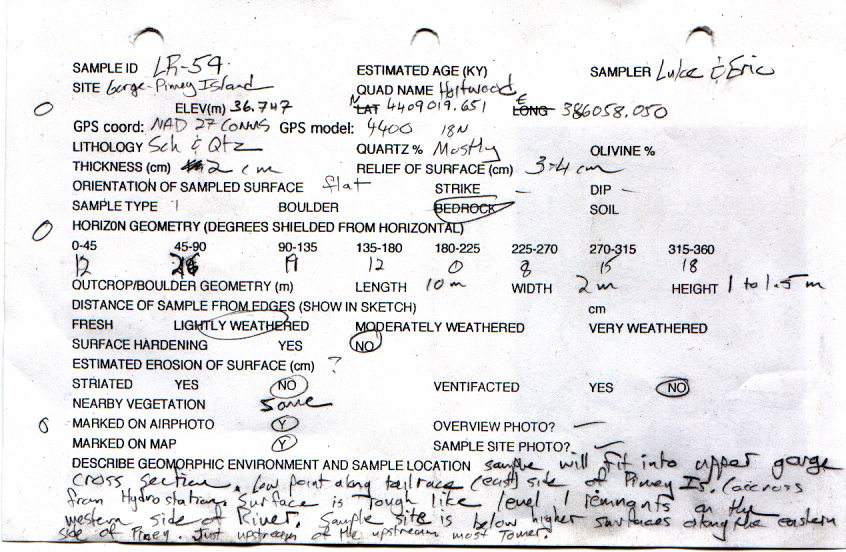 SAMPLE ID LR-59 ESTIMATED AGE (KY) SAMPLER Luke & Eric
SITE Gorge-Piney Island QUAD NAME Holtwood
ELEV(m) 36.747 N LAT 4409019.651 E LONG 386058.050
GPS coord: NAD 27 CONUS GPS model: 4400 18N
LITHOLOGY Sch & Qtz QUARTZ % Mostly OLIVINE %
THICKNESS (cm) 2 cm RELIEF OF SURFACE (cm) 3-4 cm
ORIENTATION OF SAMPLED SURFACE flat STRIKE — DIP —
SAMPLE TYPE BOULDER BEDROCK SOIL
HORIZON GEOMETRY (DEGREES SHIELDED FROM HORIZONTAL)
0-45 45-90 90-135 135-180 180-225 225-270 270-315 315-360
12 12 0 8 15 18
OUTCROP/BOULDER GEOMETRY (m) LENGTH 10 m WIDTH 2 m HEIGHT 1 to 1.5 m
DISTANCE OF SAMPLE FROM EDGES (SHOW IN SKETCH) cm
FRESH LIGHTLY WEATHERED MODERATELY WEATHERED VERY WEATHERED
SURFACE HARDENING YES NO
ESTIMATED EROSION OF SURFACE (cm) ?
STRIATED YES NO VENTIFACTED YES NO
NEARBY VEGETATION some
MARKED ON AIRPHOTO Y OVERVIEW PHOTO? —
MARKED ON MAP Y SAMPLE SITE PHOTO? —
DESCRIBE GEOMORPHIC ENVIRONMENT AND SAMPLE LOCATION sample will fit into upper gorge
cross section. low point along tailrace (east) side of Piney Is. (across
from Hydro station. Surface is rough like level 1 remnants on the
western side of River. Sample site is below higher surfaces along the eastern
side of Piney. Just upstream of the upstream most Tower.